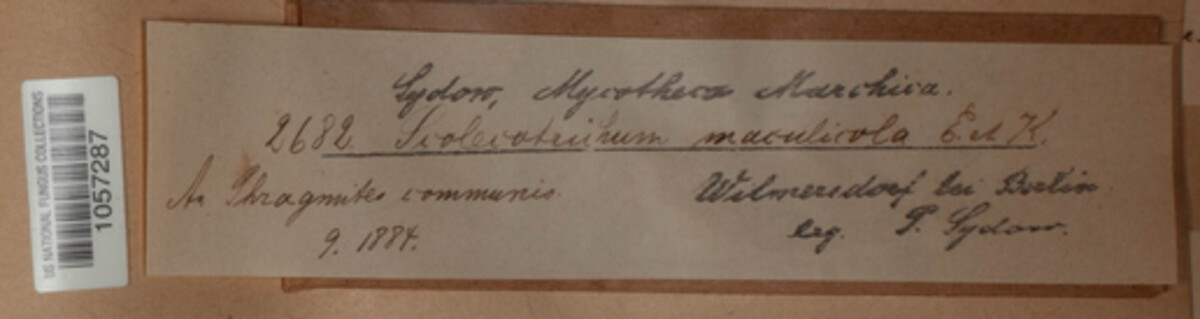 Sydow, Mycotheca Marchica.
2682. Scolecotrichum maculicola E. et K.
An Phragmites communis.
9. 1884.
Wilmersdorf bei Berlin.
leg. P. Sydow.
US NATIONAL FUNGUS COLLECTIONS
1057287